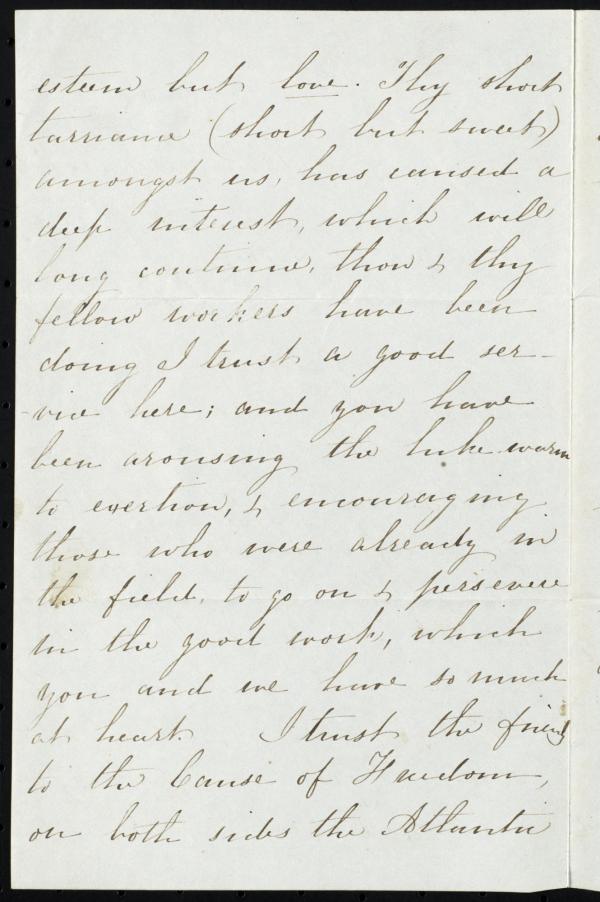 esteem but love. Thy short
tarriance (short but sweet)
amongst us, has caused a
deep interest, which will
long continue, thou & thy
fellow workers have been
doing I trust a good ser-
-vice here; and you have
been arousing the luke warm
to exertion, & encouraging
those who were already in
the field, to go on & persevere
in the good work, which
you and we have so much
at heart. I trust the friends
to the Cause of Freedom,
on both sides the Atlantic